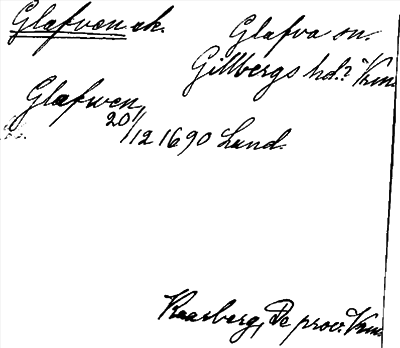 Glafven ek. Glafva sn.
Gillbergs hd.? Vrm.
Glafwen
20/12 1690 Lund.
Kaarberg, De prov. Vrm.